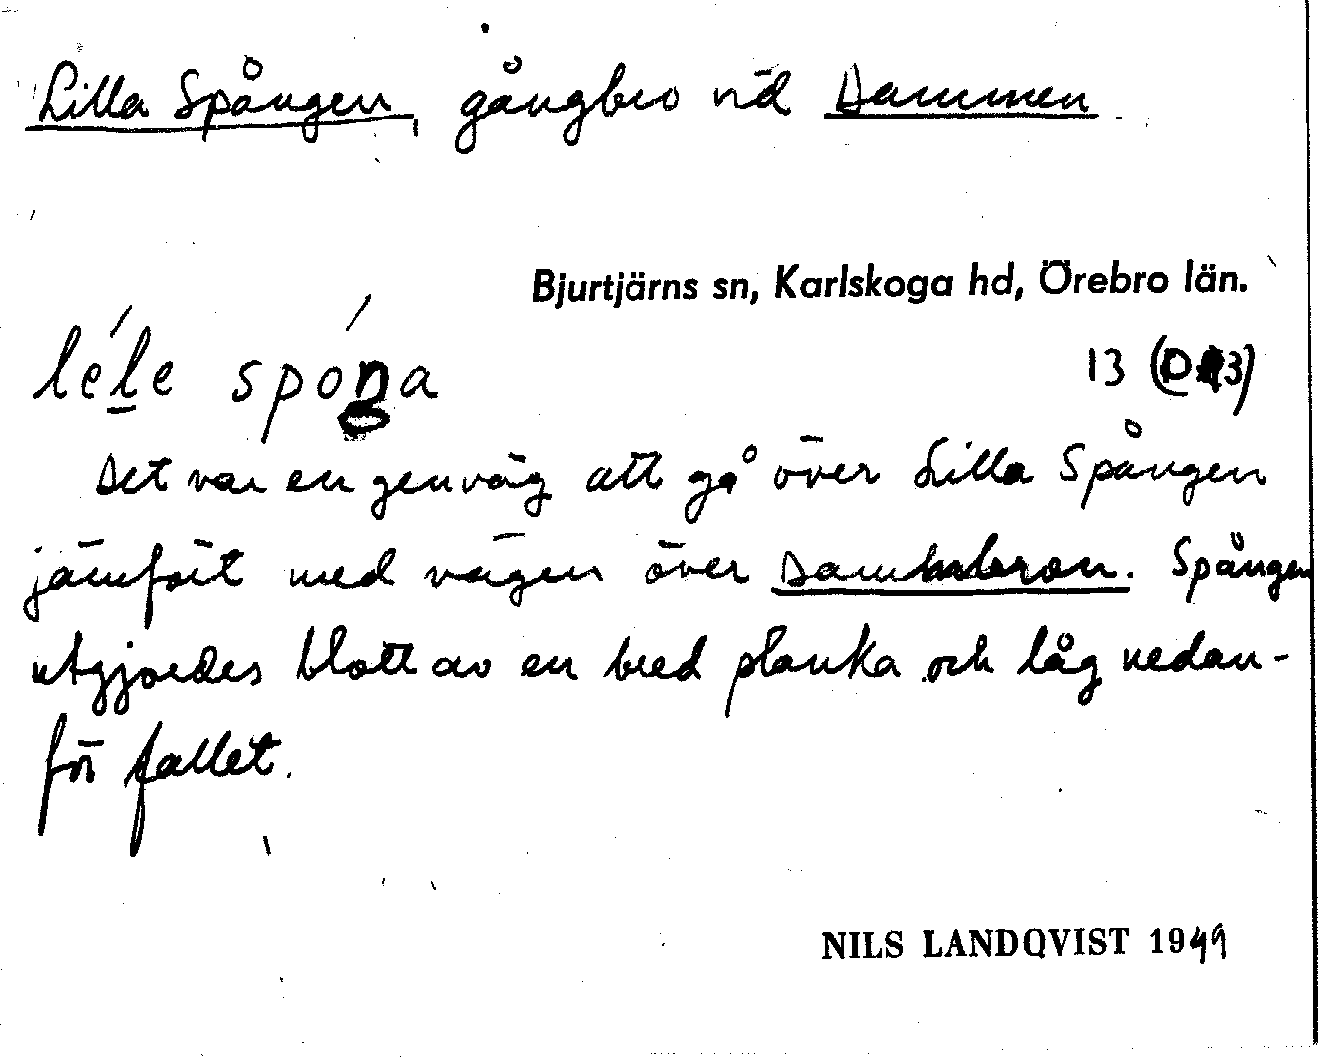 Lilla Spången, gångbro vid Dammen
Bjurtjärns sn, Karlskoga hd, Örebro län.
léle spóŋa
13 (D 13)
Det var en genväg att gå över Lilla Spången
jämfört med vägen över Dammbron. Spången
utgjordes blott av en bred planka och låg nedan-
för fallet.
NILS LANDQVIST 1949